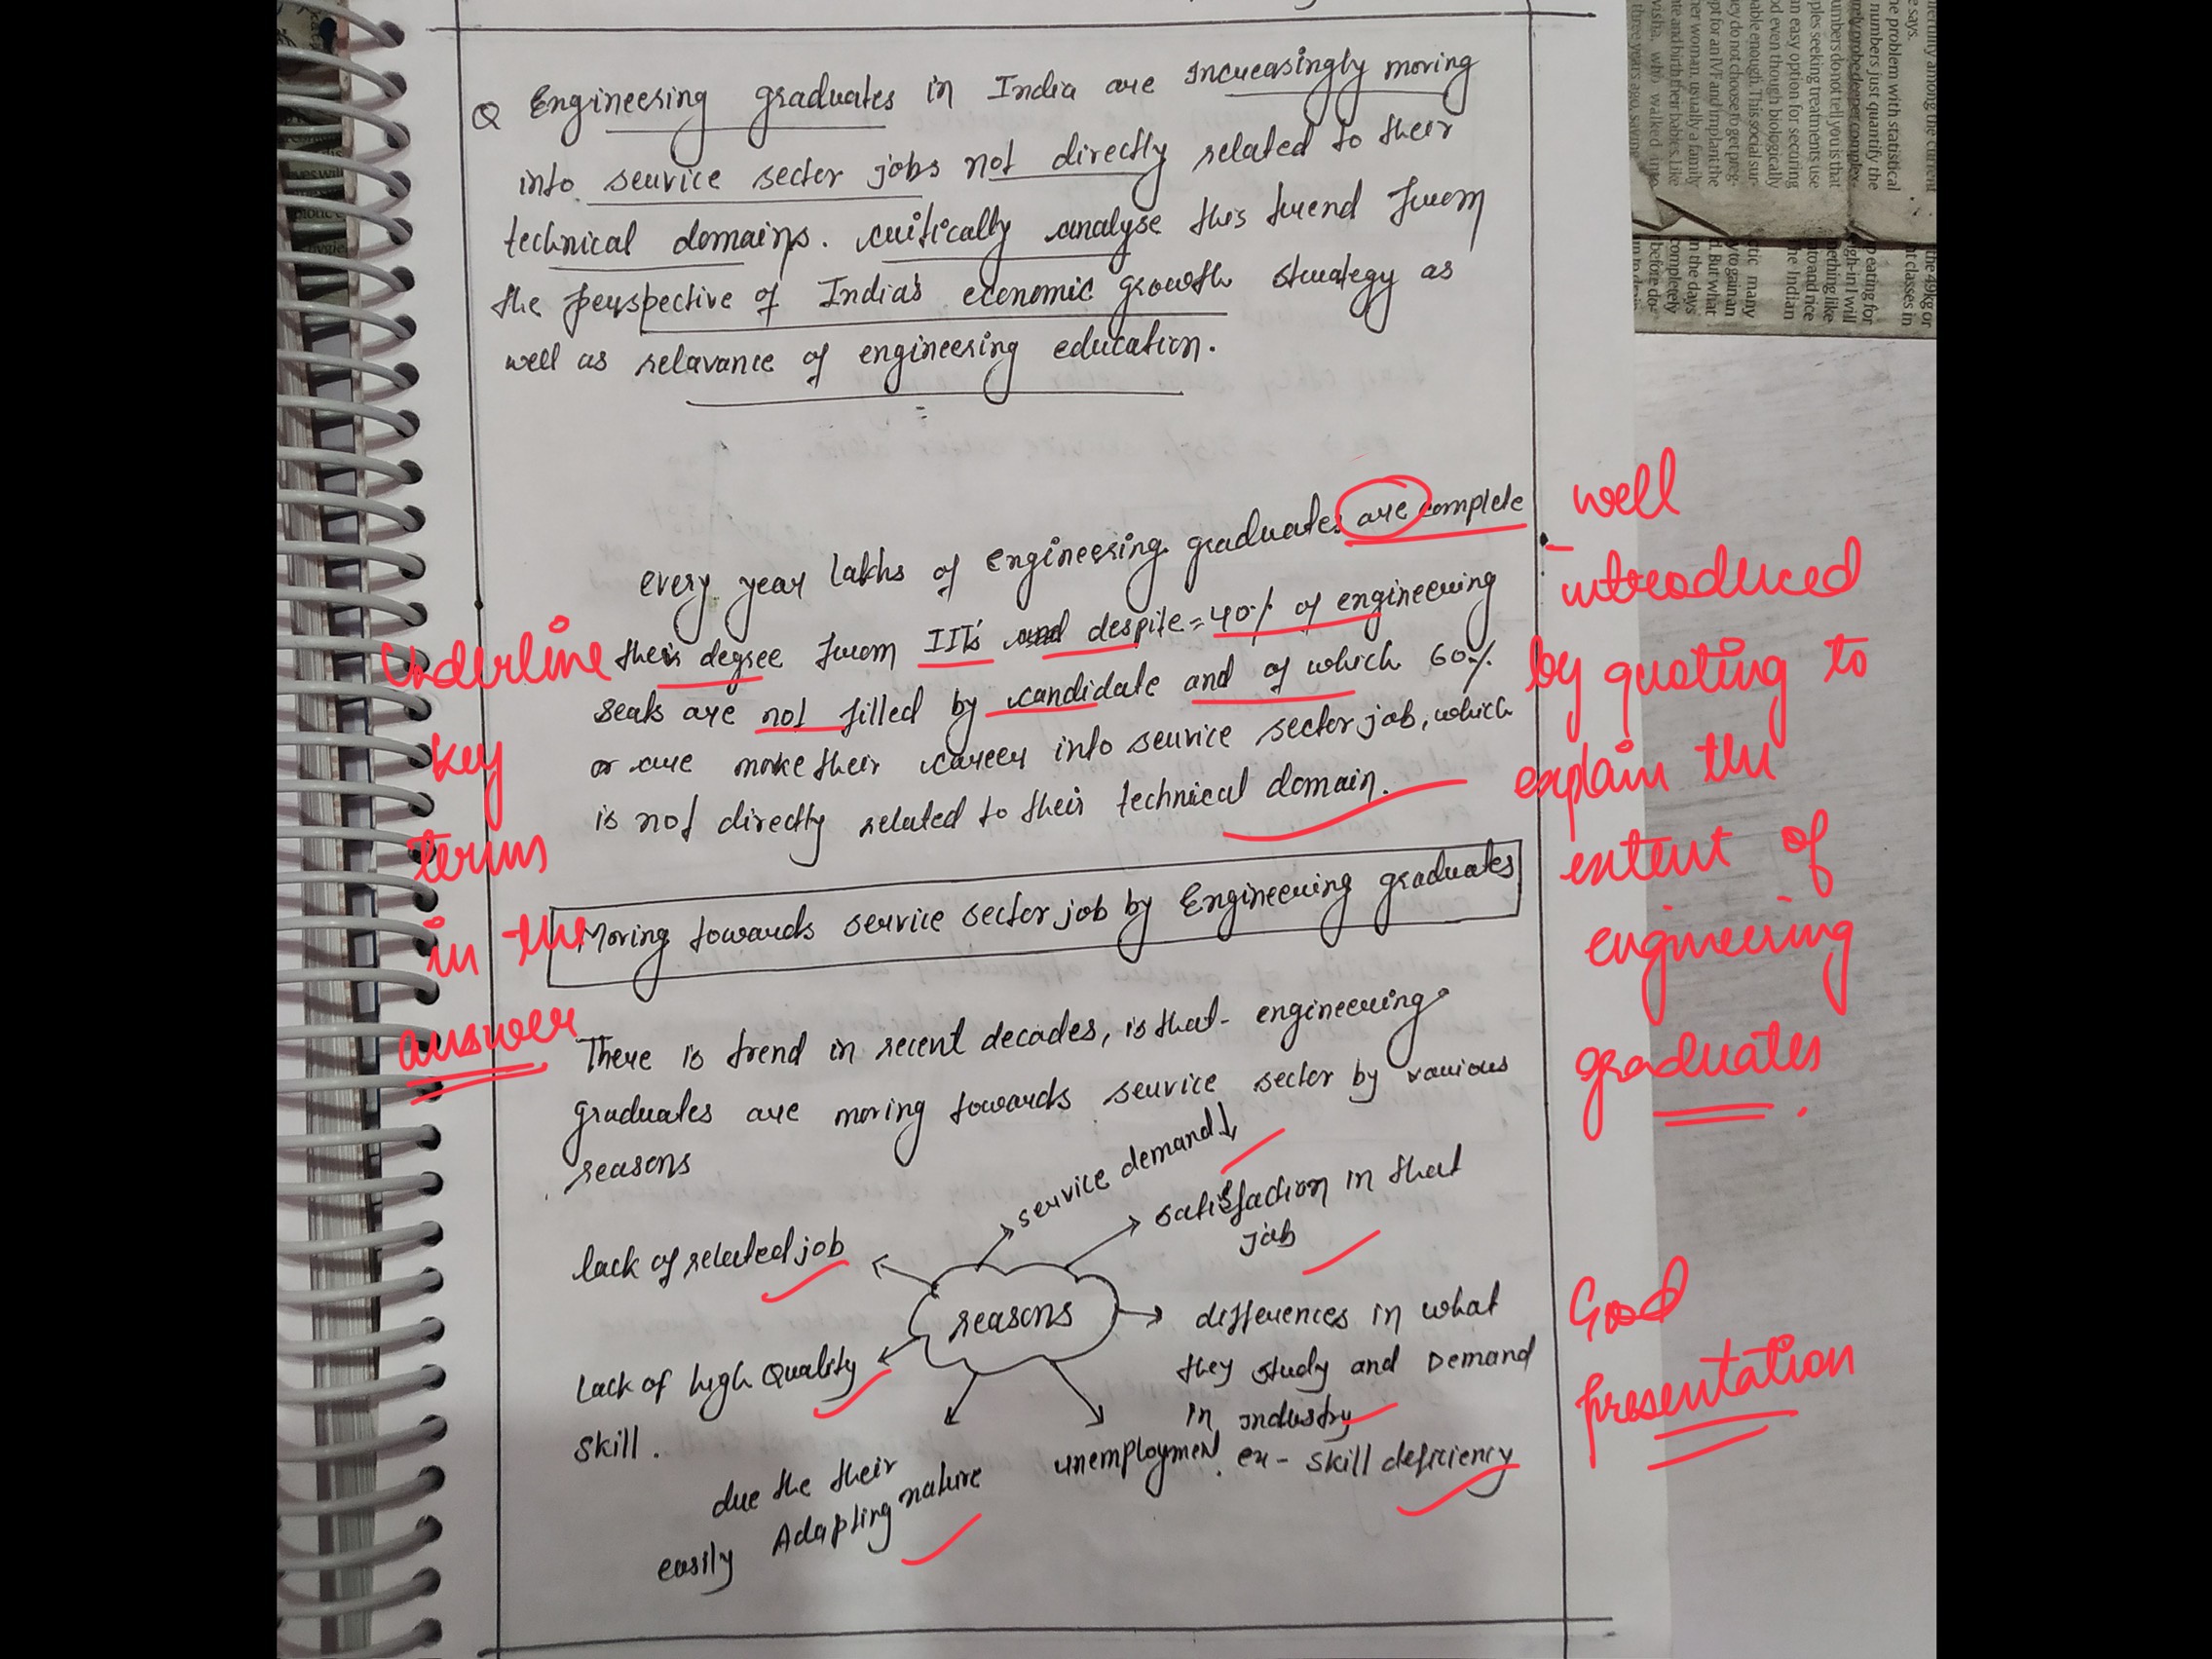 Q Engineering graduates in India are increasingly moving
into service sector jobs not directly related to their
technical domains. critically analyse this trend from
the perspective of India's economic growth strategy as
well as relavance of engineering education.
every year lakhs of engineering graduates are complete
their degree from IITs and despite = 40% of engineering
seats are not filled by candidate and of which 60%
or are make their career into service sector job, which
is not directly related to their technical domain.
Moving towards service sector job by Engineering graduates
There is trend in recent decades, is that - engineering
graduates are moving towards service sector by various
reasons
service demand ↓
satisfaction in that
job
lack of related job
reasons
differences in what
they study and Demand
in industry
ex - skill deficiency
Lack of high Quality
skill.
due the their
easily Adapting nature
unemploymen
Underline
key
terms
in the
answer
well
introduced
by quoting to
explain the
extent of
engineering
graduates.
Good
presentation
the problem with statistical
numbers just quantify the